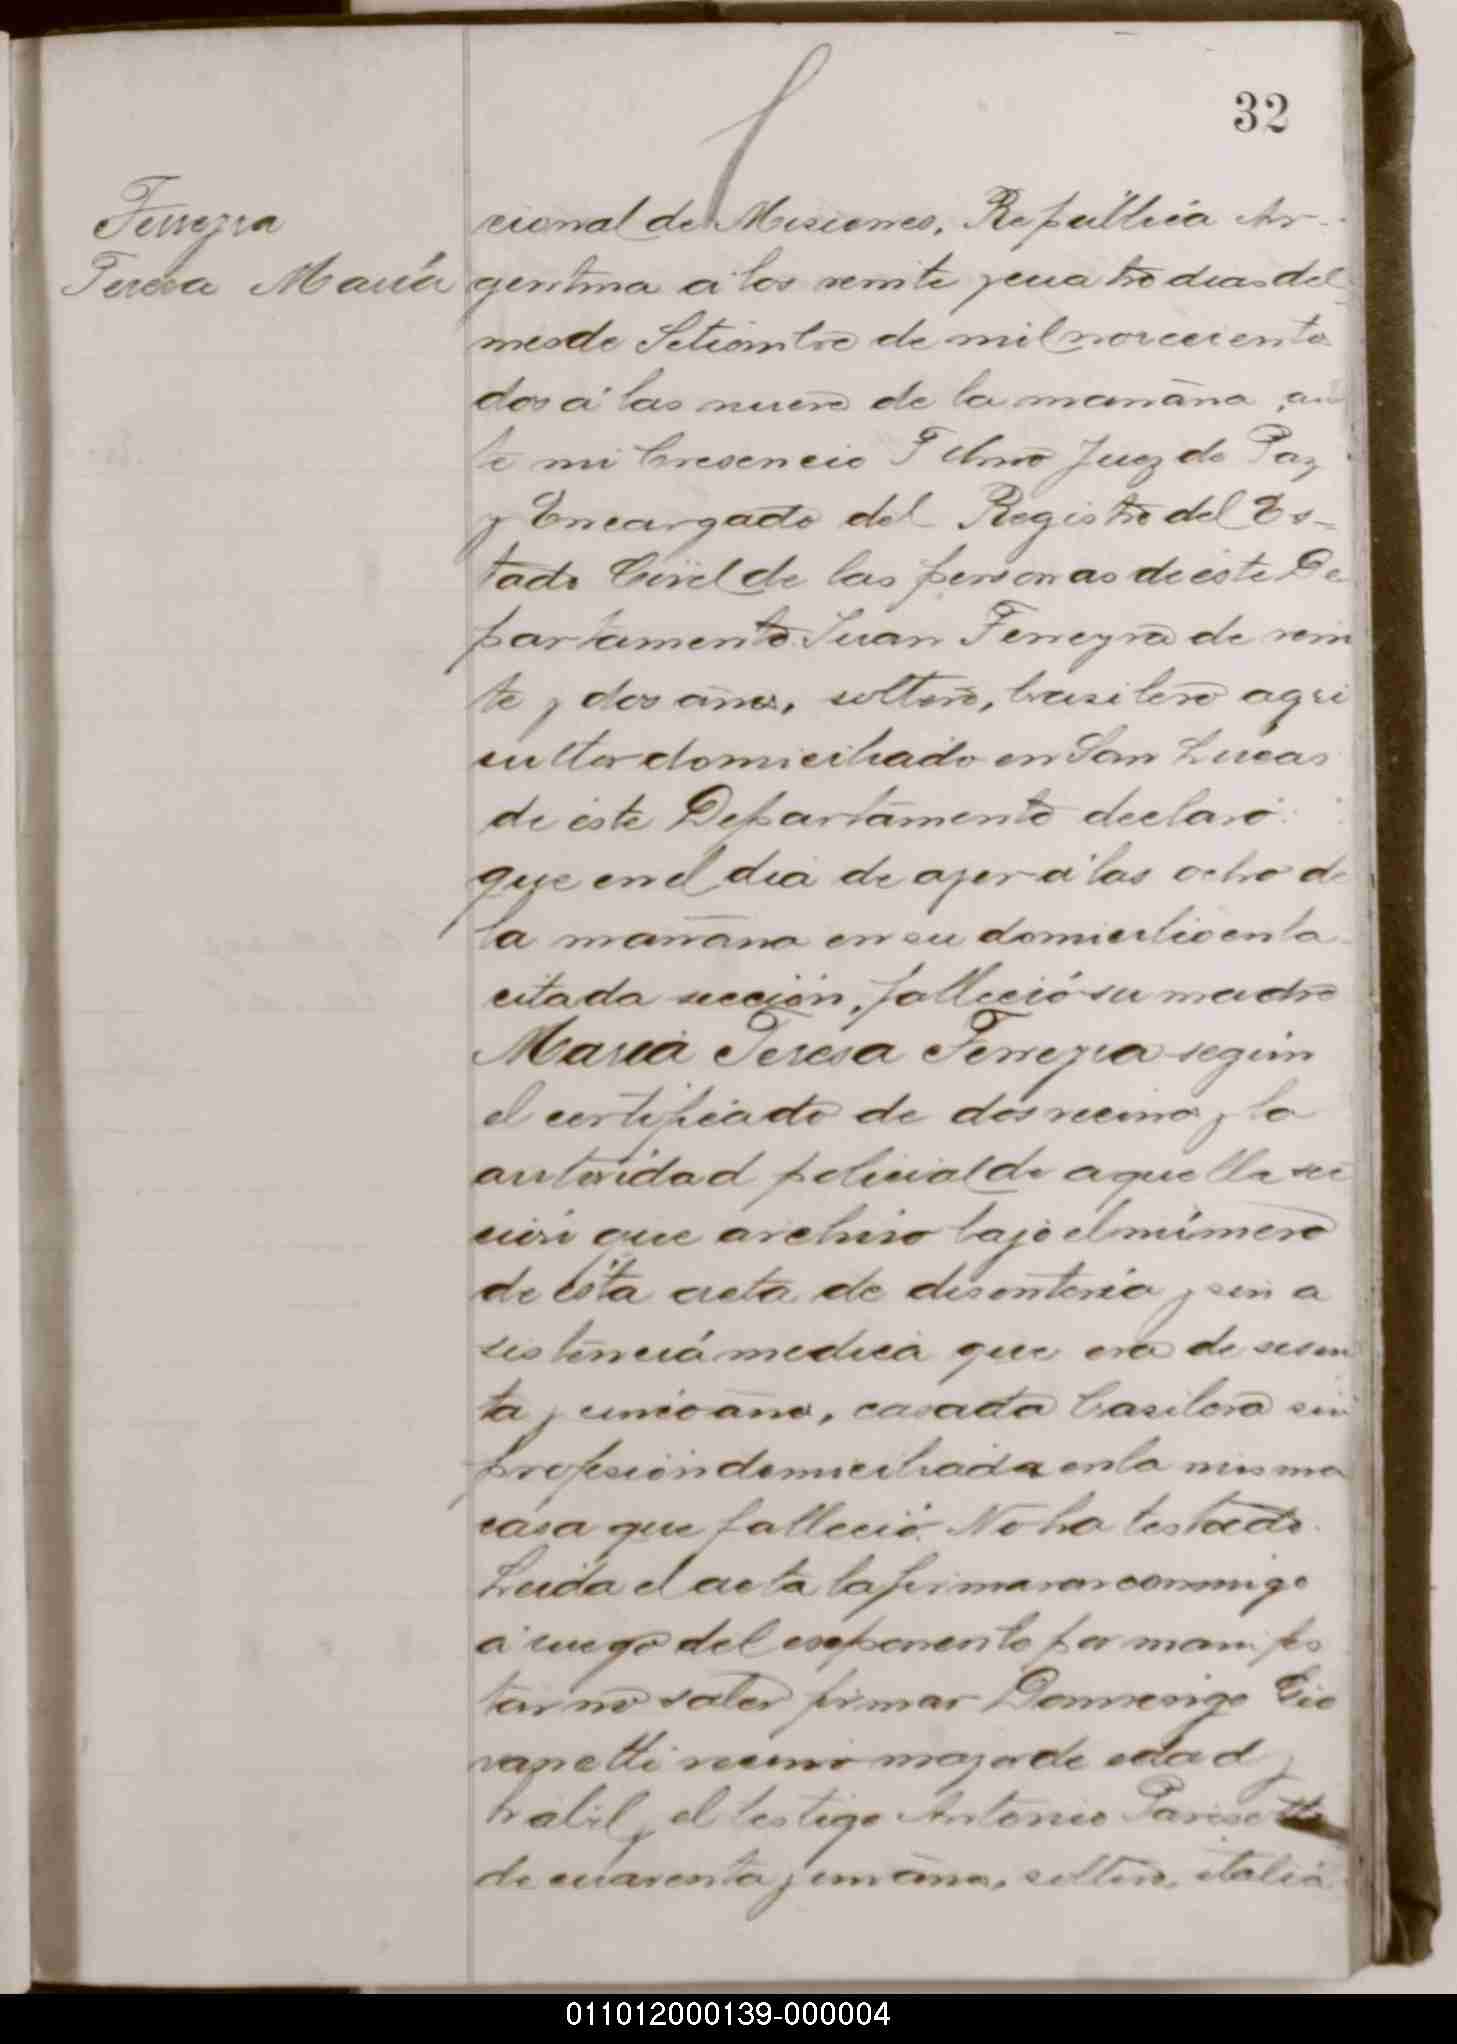 32
Ferreyra
Teresa María
cional de Misiones, República Ar-
gentina á los veinte y cuatro dias del
mes de Setiembre de mil novecientos
dos á las nueve de la mañana, an
te mi Cresencio Juez de Paz
y Encargado del Registro del Es-
tado Civil de las personas de este De
partamento Juan Ferreyra de vein
te y dos años, soltero, brasilero agri
cultor domiciliado en San Lucas
de éste Departamento declaró:
que en el dia de ayer á las ocho de
la mañana en su domicilio en la
citada sección, falleció su madre
María Teresa Ferreyra según
el certificado de dos vecinos y la
autoridad policial de aquella sec
ción que archivo bajo el número
de ésta acta de disentería y sin a
sistencia medica que era de sesen
ta y cinco años, casada brasilera sin
profesión domiciliada en la misma
casa que falleció. No ha testado.
Leída el acta la firmaron conmigo
á ruego del esponente por manifes
tar no saber firmar Domenigo Gio
vanetti vecino mayor de edad y
habil y el testigo Antonio Parisotto
de cuarenta y un años, soltero, italia
011012000139-000004